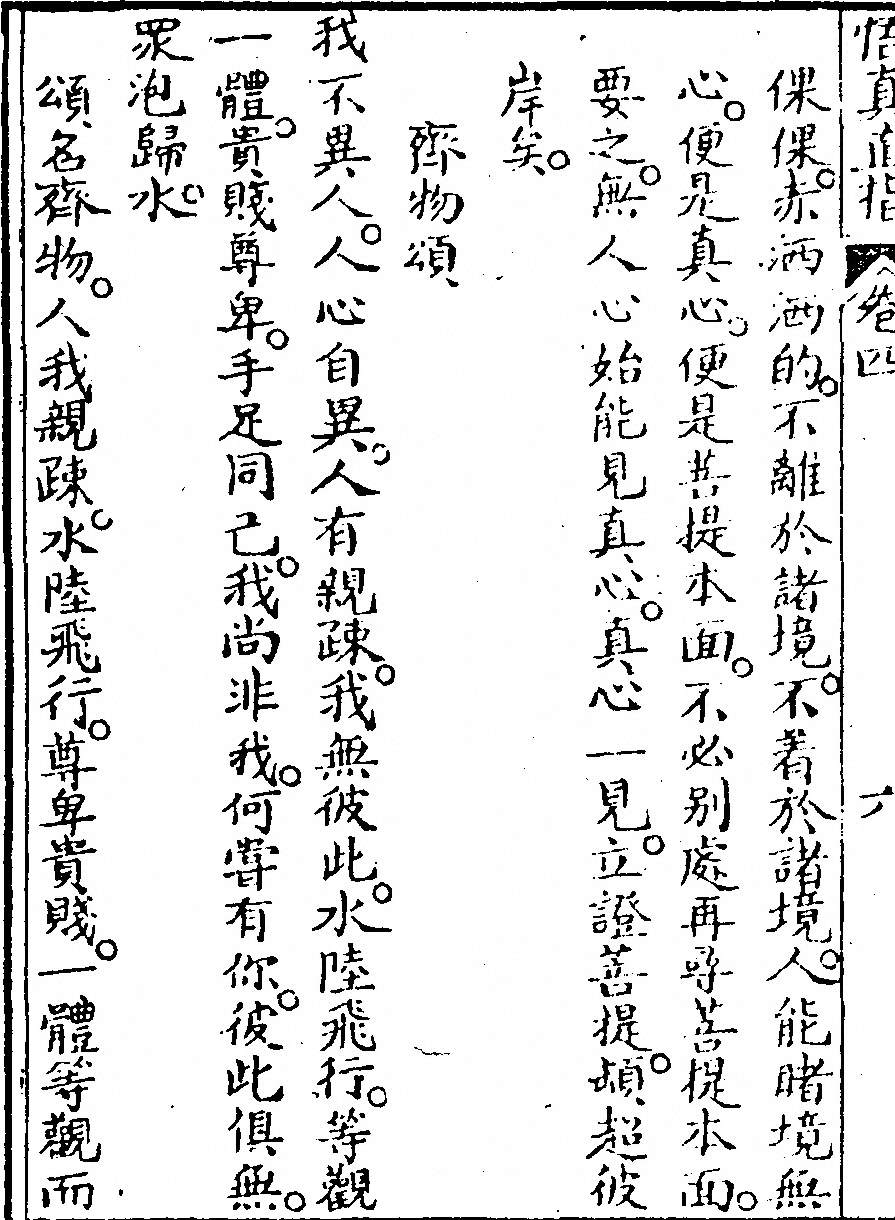 悟真直指 卷四
倮倮。赤洒洒的。不離於諸境。不着於諸境。人能睹境無
心。便是真心。便是菩提本面。不必别處再尋菩提本面。
要之。無人心始能見真心。真心一見。立證菩提。頓超彼
岸矣。
齊物頌
我不異人。人心自異。人有親疎。我無彼此。水陸飛行。等觀
一體。貴賤尊卑。手足同己。我尚非我。何嘗有你。彼此俱無。
眾泡歸水。
頌名齊物。人我親疎。水陸飛行。尊卑貴賤。一體等觀而